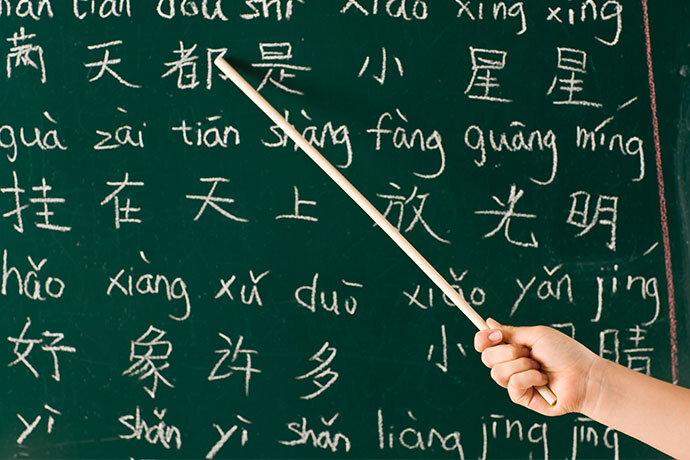 man tian dou shi xiao xing xing
满天都是小星星
guà zài tiān shàng fàng guāng míng
挂在天上放光明
hǎo xiàng xǔ duō xiǎo yǎn jīng
好象许多小睛
yì shǎn yì shǎn liàng jīng jīng